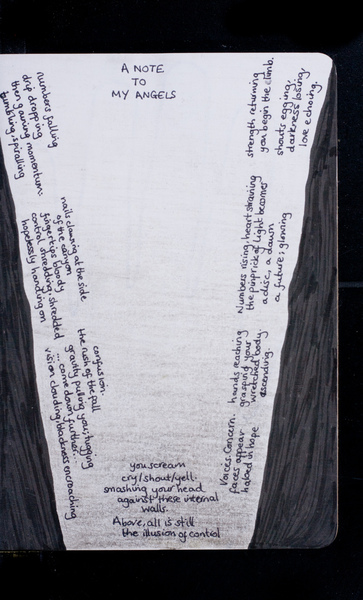 A NOTE
TO
MY ANGELS
numbers falling
drip dropping
then gaining momentum:
tumbling, spiralling
nails clawing at the side
of the canyon
fingertips bloody
control shredding, shredded
hopelessly hanging on
confusion.
the rush of the fall
gravity pulling you; tugging
... come down further.
vision clouding/blackness encroaching
you scream
cry/shout/yell.
smashing your head
against these internal
walls.
Above, all is still
the illusion of control
Voices. Concern.
faces appear
haloed in hope
hands reaching
grasping your
wretched body.
ascending.
Numbers rising, heart straining
the pinprick of light becomes
a disc, a dawn
a future; glowing
strength returning
you begin the climb.
shouts egging,
darkness losing,
love echoing.